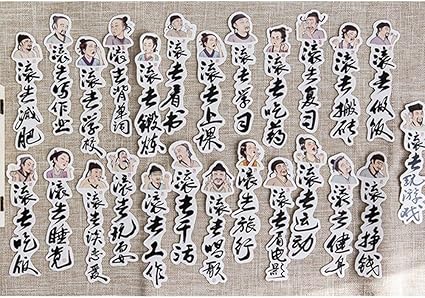 滚去减肥
滚去写作业
滚去学校
滚去背单词
滚去锻炼
滚去看书
滚去上课
滚去学习
滚去吃药
滚去复习
滚去搬砖
滚去做饭
滚去玩游戏
滚去吃饭
滚去睡觉
滚去谈恋爱
滚去现充
滚去工作
滚去干活
滚去唱歌
滚去旅行
滚去看电影
滚去运动
滚去健身
滚去挣钱